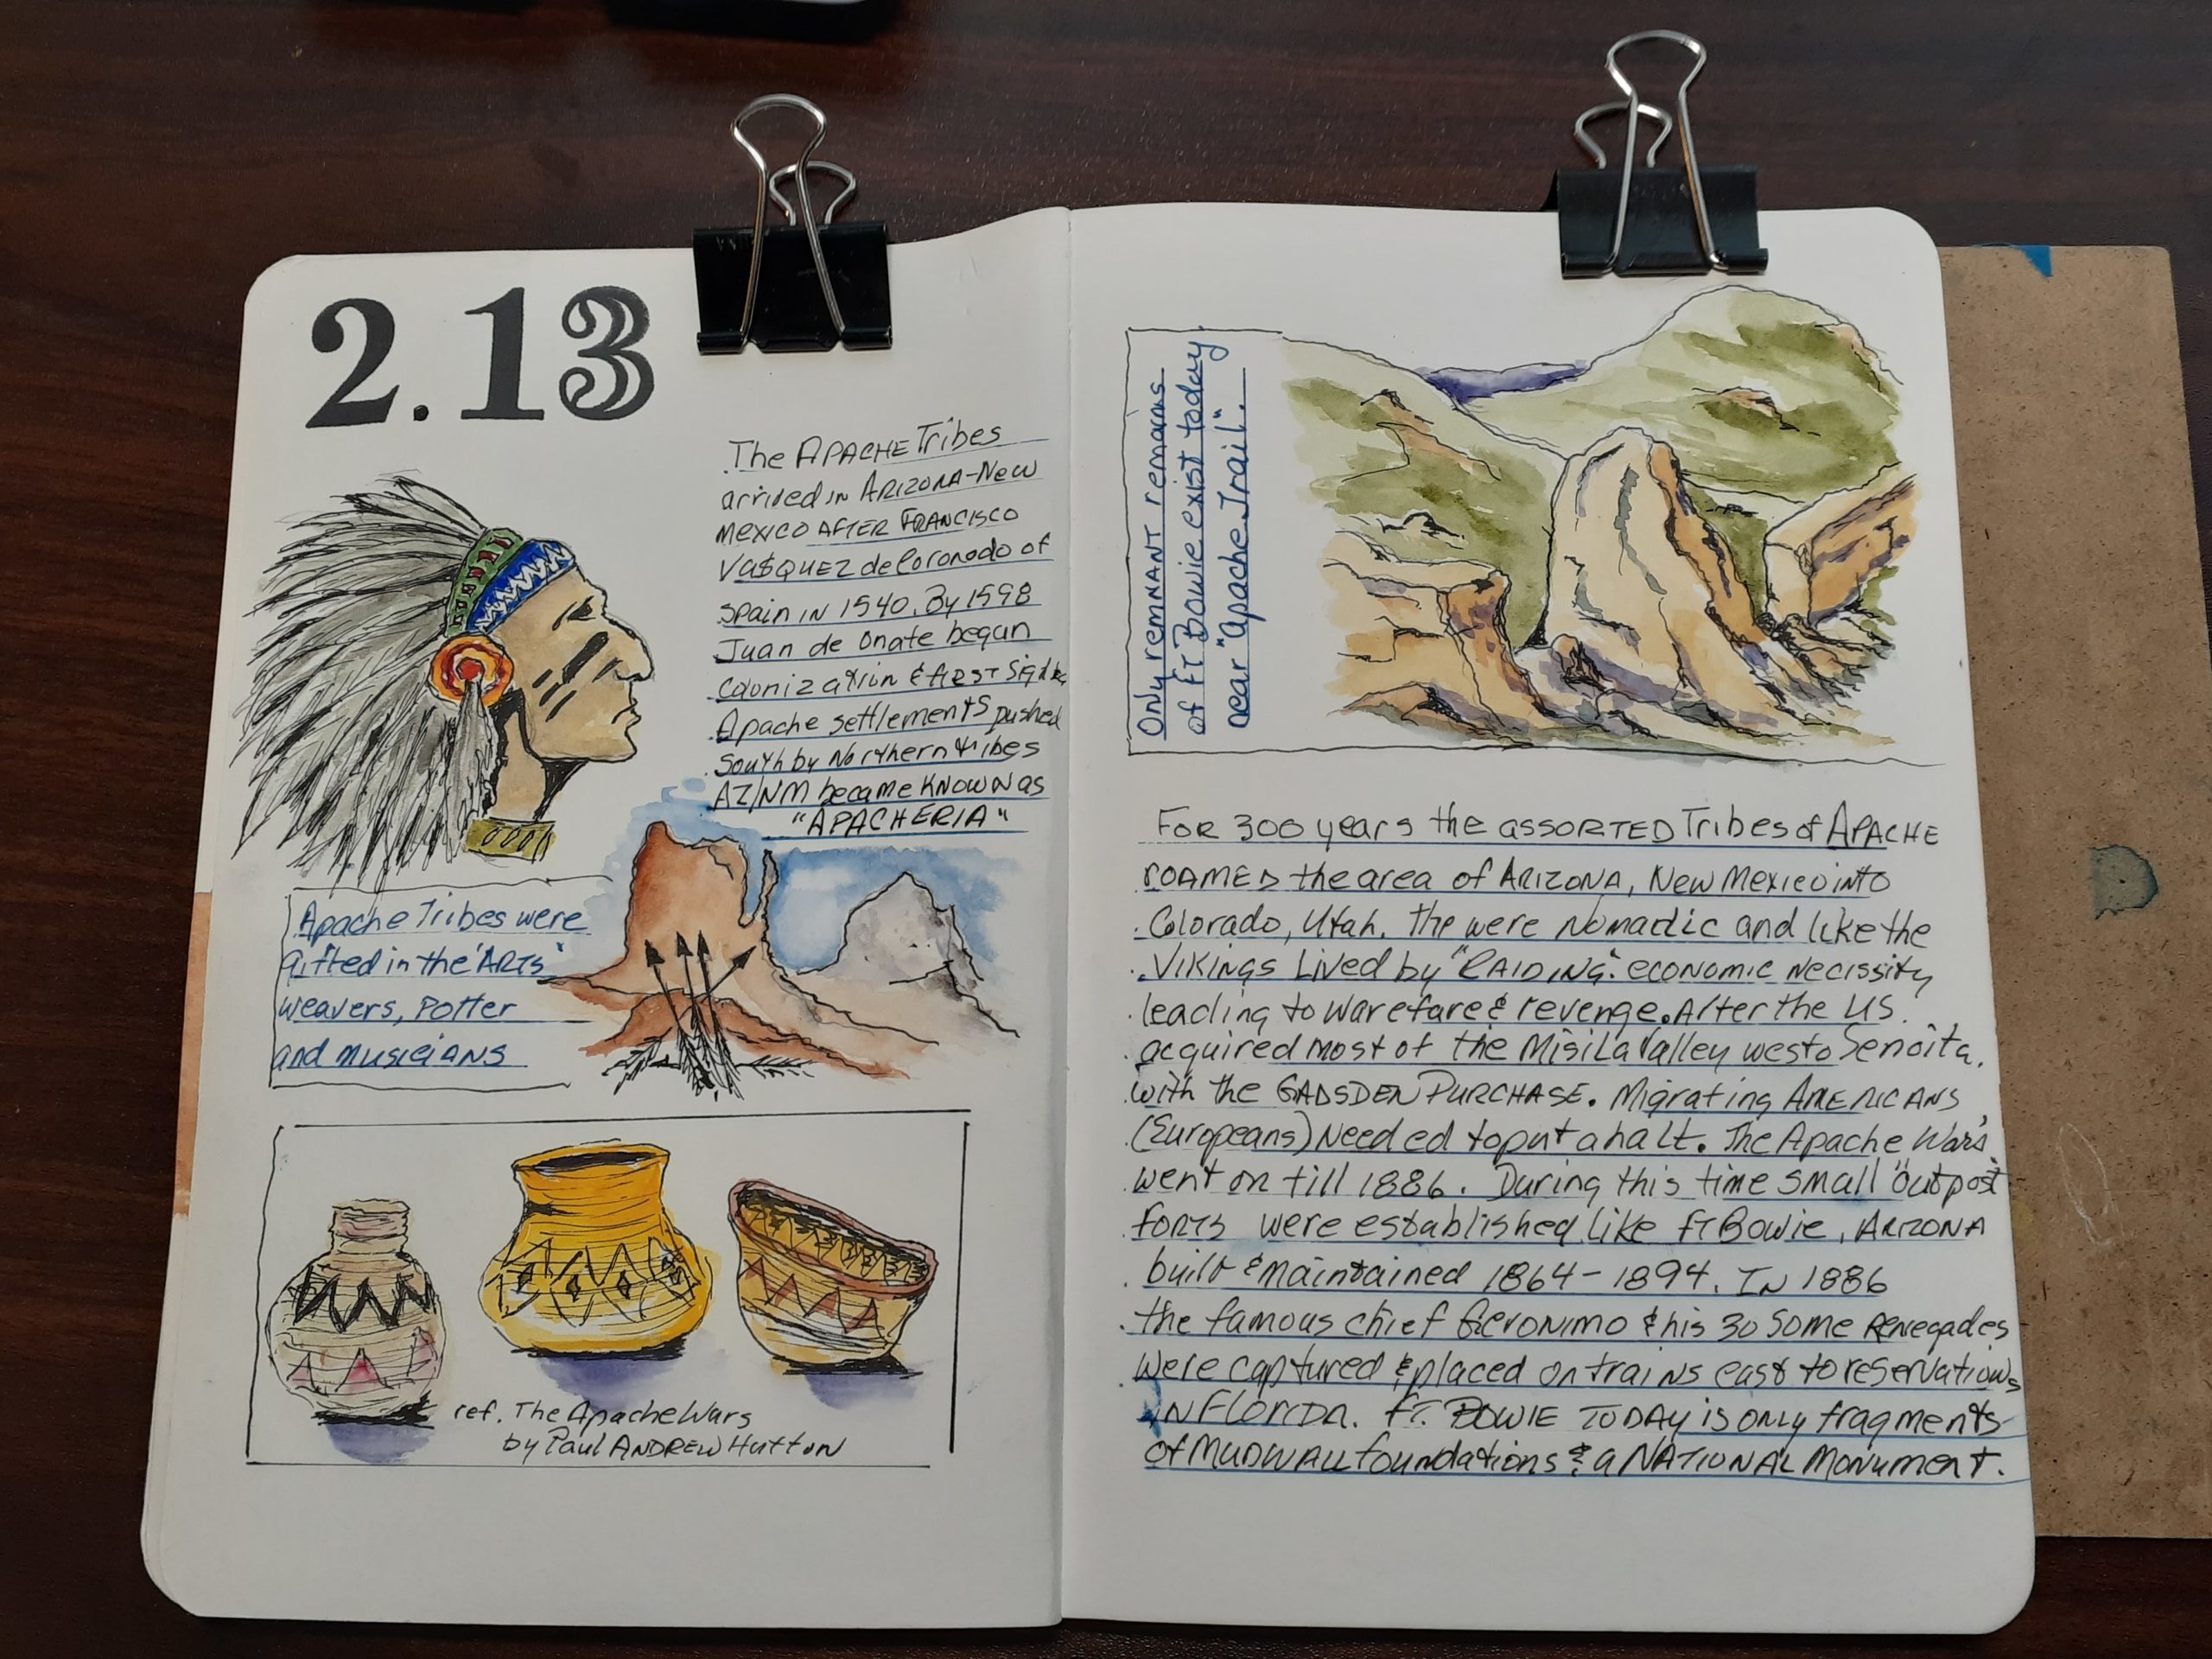 2.13
The APACHE Tribes
arrived in ARIZONA-New
Mexico AFTER FRANCISCO
VASQUEZ de Coronado of
Spain in 1540. By 1598
Juan de Onate began
colonization & first
Apache settlements pushed
South by Northern tribes
AZ/NM became known as
"APACHERIA"
Apache Tribes were
gifted in the "ARTS"
weavers, Potter
and musicians
ref. The Apache Wars
by Paul ANDREW Hutton
Only remnant remains
of Ft Bowie exist today
near "Apache Trail".
FOR 300 years the ASSORTED Tribes of APACHE
ROAMED the area of ARIZONA, New Mexico into
Colorado, Utah. The were Nomadic and like the
VIKINGS Lived by "RAIDING". economic necissity
leading to warefare & revenge. After the US
acquired most of the Misila Valley west to Senoita,
with the GADSDEN PURCHASE. Migrating AMERICANS
(Europeans) Needed to put a halt. The Apache Wars
went on till 1886. During this time small "outpost"
FORTS were established like Ft Bowie, ARIZONA
built & maintained 1864-1894. IN 1886
the famous chief Geronimo & his 30 some Renegades
were captured & placed on trains east to reservations
IN FLORIDA. FT. BOWIE TODAY is only fragments
of MUDWALL foundations & a NATIONAL Monument.